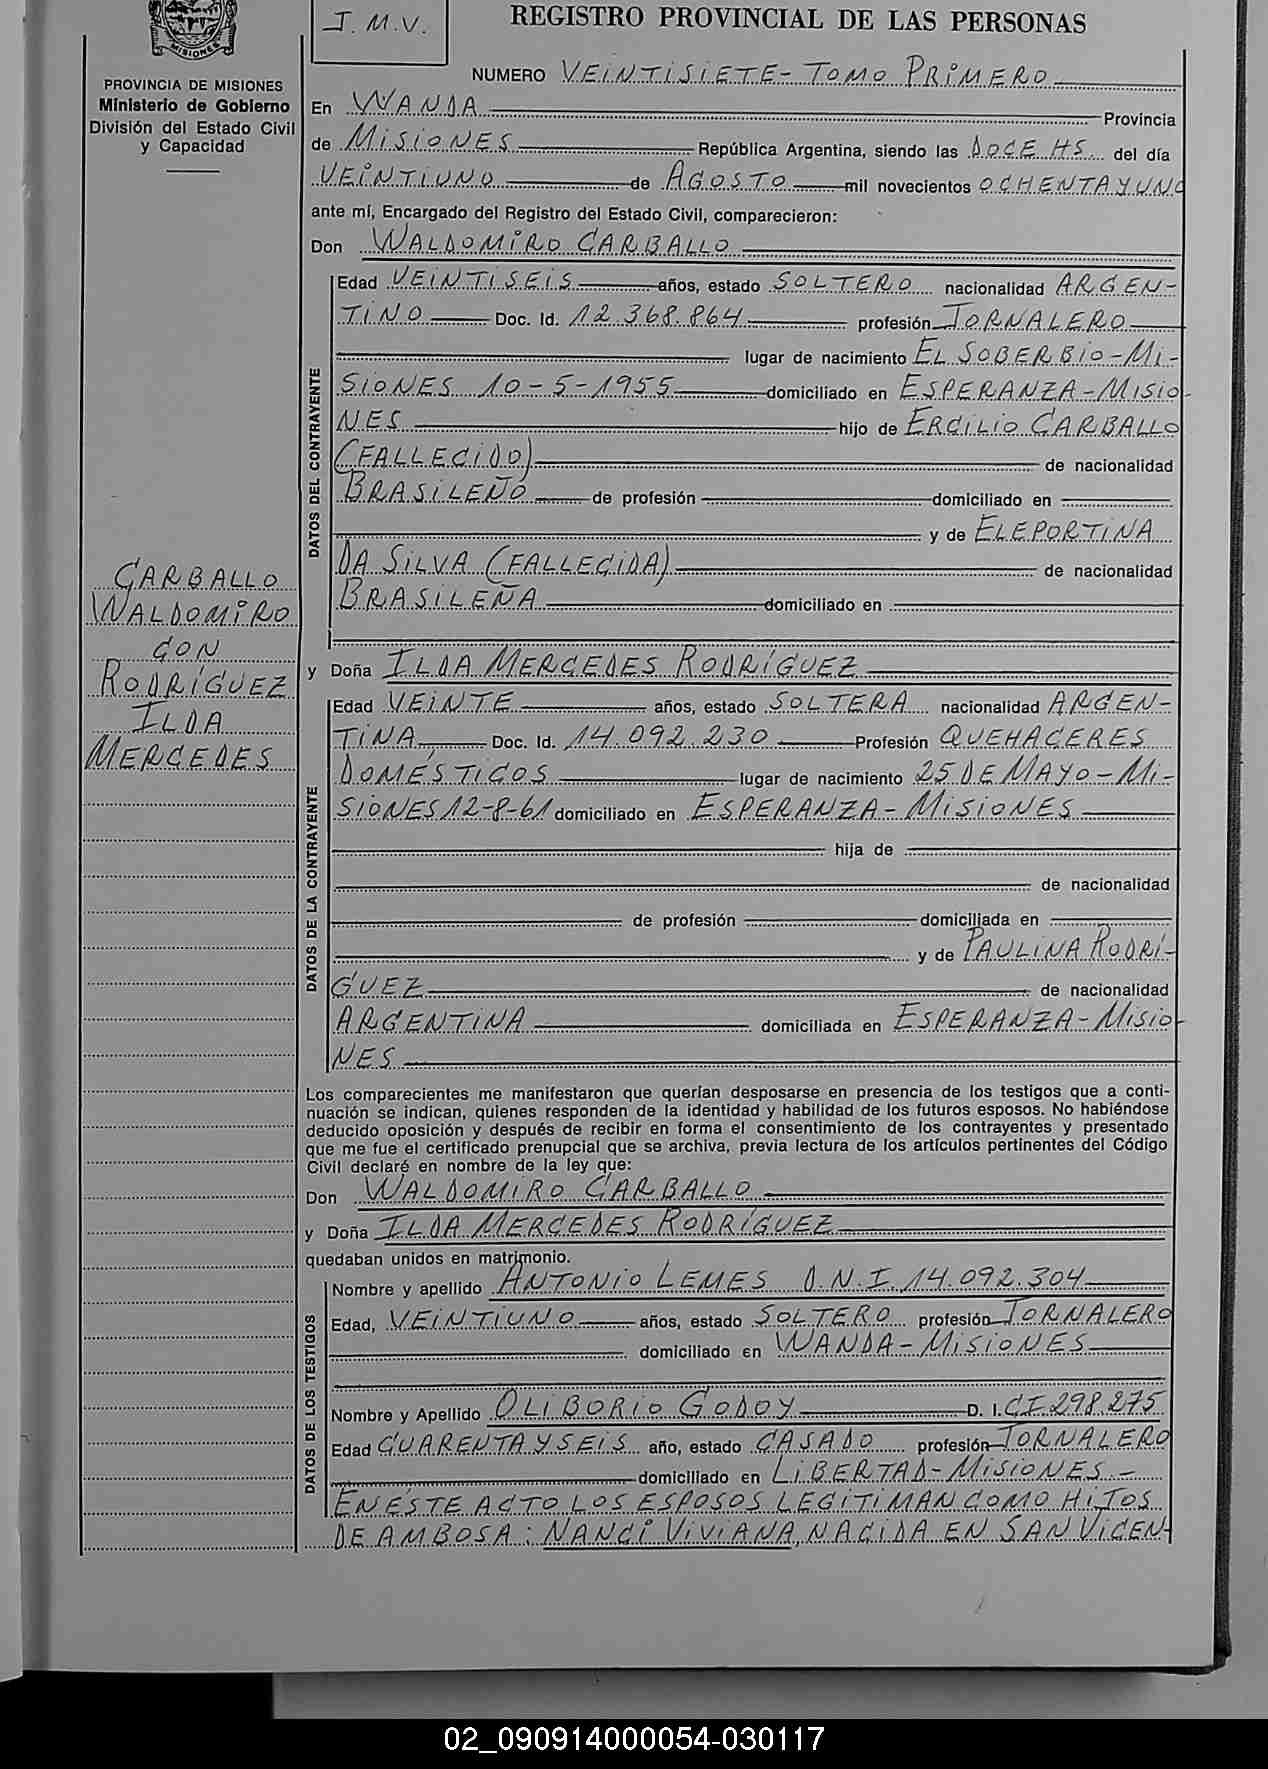 J. M. V.
REGISTRO PROVINCIAL DE LAS PERSONAS
MISIONES
PROVINCIA DE MISIONES
Ministerio de Gobierno
División del Estado Civil
y Capacidad
NUMERO VEINTISIETE - TOMO PRIMERO
En WANDA Provincia
de MISIONES República Argentina, siendo las DOCE HS. del día
VEINTIUNO de AGOSTO mil novecientos OCHENTA Y UNO
ante mí, Encargado del Registro del Estado Civil, comparecieron:
Don WALDOMIRO CARBALLO
DATOS DEL CONTRAYENTE
Edad VEINTISEIS años, estado SOLTERO nacionalidad ARGEN-
TINO Doc. Id. 12.368.864 profesión JORNALERO
lugar de nacimiento EL SOBERBIO - MI-
SIONES 10-5-1955 domiciliado en ESPERANZA - MISIO-
NES hijo de ERCILIO CARBALLO
(FALLECIDO) de nacionalidad
BRASILEÑO de profesión domiciliado en
y de ELEPORTINA
DA SILVA (FALLECIDA) de nacionalidad
BRASILEÑA domiciliado en
CARBALLO
WALDOMIRO
CON
RODRÍGUEZ
ILDA
MERCEDES
y Doña ILDA MERCEDES RODRÍGUEZ
DATOS DE LA CONTRAYENTE
Edad VEINTE años, estado SOLTERA nacionalidad ARGEN-
TINA Doc. Id. 14.092.230 Profesión QUEHACERES
DOMÉSTICOS lugar de nacimiento 25 DE MAYO - MI-
SIONES 12-8-61 domiciliado en ESPERANZA - MISIONES
hija de
de nacionalidad
de profesión domiciliada en
y de PAULINA RODRÍ-
GUEZ de nacionalidad
ARGENTINA domiciliada en ESPERANZA - MISIO-
NES
Los comparecientes me manifestaron que querían desposarse en presencia de los testigos que a conti-
nuación se indican, quienes responden de la identidad y habilidad de los futuros esposos. No habiéndose
deducido oposición y después de recibir en forma el consentimiento de los contrayentes y presentado
que me fue el certificado prenupcial que se archiva, previa lectura de los artículos pertinentes del Código
Civil declaré en nombre de la ley que:
Don WALDOMIRO CARBALLO
y Doña ILDA MERCEDES RODRÍGUEZ
quedaban unidos en matrimonio.
DATOS DE LOS TESTIGOS
Nombre y apellido ANTONIO LEMES D.N.I. 14.092.304
Edad, VEINTIUNO años, estado SOLTERO profesión JORNALERO
domiciliado en WANDA - MISIONES
Nombre y Apellido OLIBORIO GODOY D. I. CI 298.275
Edad CUARENTA Y SEIS año, estado CASADO profesión JORNALERO
domiciliado en LIBERTAD - MISIONES -
EN ÉSTE ACTO LOS ESPOSOS LEGITIMAN COMO HIJOS
DE AMBOS A: NANCI VIVIANA, NACIDA EN SAN VICEN-
02_090914000054-030117